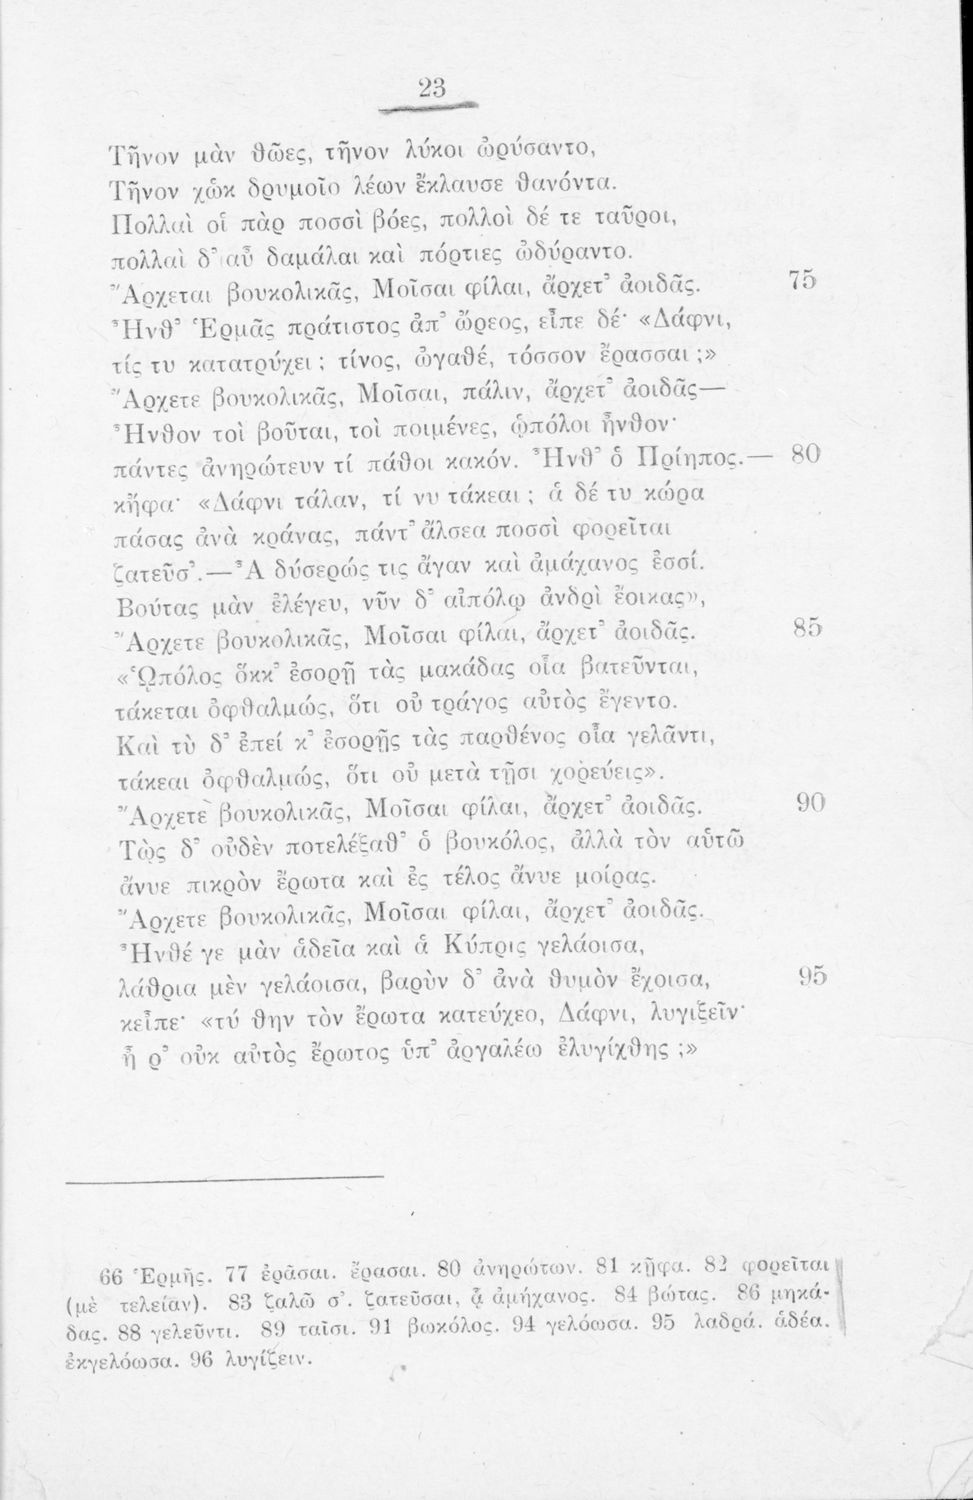 23
Τῆνον μὰν θῶες, τῆνον λύκοι ὠρύσαντο,
Τῆνον χὠκ δρυμοῖο λέων ἔκλαυσε θανόντα.
Πολλαὶ οἱ πὰρ ποσσὶ βόες, πολλοὶ δέ τε ταῦροι,
πολλαὶ δ' αὖ δαμάλαι καὶ πόρτιες ὠδύραντο.
Ἄρχεται βουκολικᾶς, Μοῖσαι φίλαι, ἄρχετ' ἀοιδᾶς. 75
Ἦνθ' Ἑρμᾶς πράτιστος ἀπ' ὤρεος, εἶπε δέ· «Δάφνι,
τίς τυ κατατρύχει; τίνος, ὠγαθέ, τόσσον ἔρασσαι;»
Ἄρχετε βουκολικᾶς, Μοῖσαι, πάλιν, ἄρχετ' ἀοιδᾶς—
Ἦνθον τοὶ βοῦται, τοὶ ποιμένες, ᾡπόλοι ἦνθον·
πάντες ἀνηρώτευν τί πάθοι κακόν. Ἦνθ' ὁ Πρίηπος.— 80
κἤφα· «Δάφνι τάλαν, τί νυ τάκεαι; ἁ δέ τυ κώρα
πάσας ἀνὰ κράνας, πάντ' ἄλσεα ποσσὶ φορεῖται
ζατεῦσ'.—Ἆ δύσερώς τις ἄγαν καὶ ἀμάχανος ἐσσί.
Βούτας μὰν ἐλέγευ, νῦν δ' αἰπόλῳ ἀνδρὶ ἔοικας»,
Ἄρχετε βουκολικᾶς, Μοῖσαι φίλαι, ἄρχετ' ἀοιδᾶς. 85
«Ὡπόλος ὅκκ' ἐσορῇ τὰς μακάδας οἷα βατεῦνται,
τάκεται ὀφθαλμώς, ὅτι οὐ τράγος αὐτὸς ἔγεντο.
Καὶ τὺ δ' ἐπεί κ' ἐσορῇς τὰς παρθένος οἷα γελᾶντι,
τάκεαι ὀφθαλμώς, ὅτι οὐ μετὰ τῇσι χορεύεις».
Ἄρχετε βουκολικᾶς, Μοῖσαι φίλαι, ἄρχετ' ἀοιδᾶς. 90
Τὼς δ' οὐδὲν ποτελέξαθ' ὁ βουκόλος, ἀλλὰ τὸν αὑτῶ
ἄνυε πικρὸν ἔρωτα καὶ ἐς τέλος ἄνυε μοίρας.
Ἄρχετε βουκολικᾶς, Μοῖσαι φίλαι, ἄρχετ' ἀοιδᾶς.
Ἦνθέ γε μὰν ἁδεῖα καὶ ἁ Κύπρις γελάοισα,
λάθρια μὲν γελάοισα, βαρὺν δ' ἀνὰ θυμὸν ἔχοισα, 95
κεἶπε· «τύ θην τὸν ἔρωτα κατεύχεο, Δάφνι, λυγιξεῖν·
ἦ ρ' οὐκ αὐτὸς ἔρωτος ὑπ' ἀργαλέω ἐλυγίχθης;»
66 Ἑρμῆς. 77 ἐρᾶσαι. ἔρασαι. 80 ἀνηρώτων. 81 κῇφα. 82 φορεῖται
(μὲ τελείαν). 83 ζαλῶ σ'. ζατεῦσαι, ᾆ ἀμήχανος. 84 βώτας. 86 μηκά-
δας. 88 γελεῦντι. 89 ταῖσι. 91 βωκόλος. 94 γελόωσα. 95 λαδρά. ἁδέα.
ἐκγελόωσα. 96 λυγίζειν.